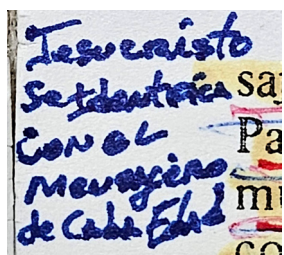 Jesucristo
Se Identifica
CON EL
Mensajero
de Cada Edad
sa
Pa
mu
co